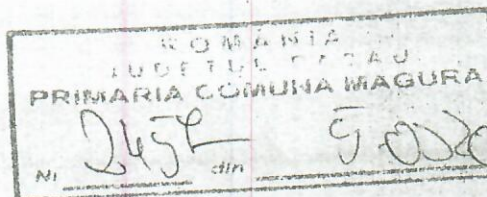 ROMÂNIA
JUDEȚUL BACĂU
PRIMARIA COMUNA MAGURA
Nr 2457 din